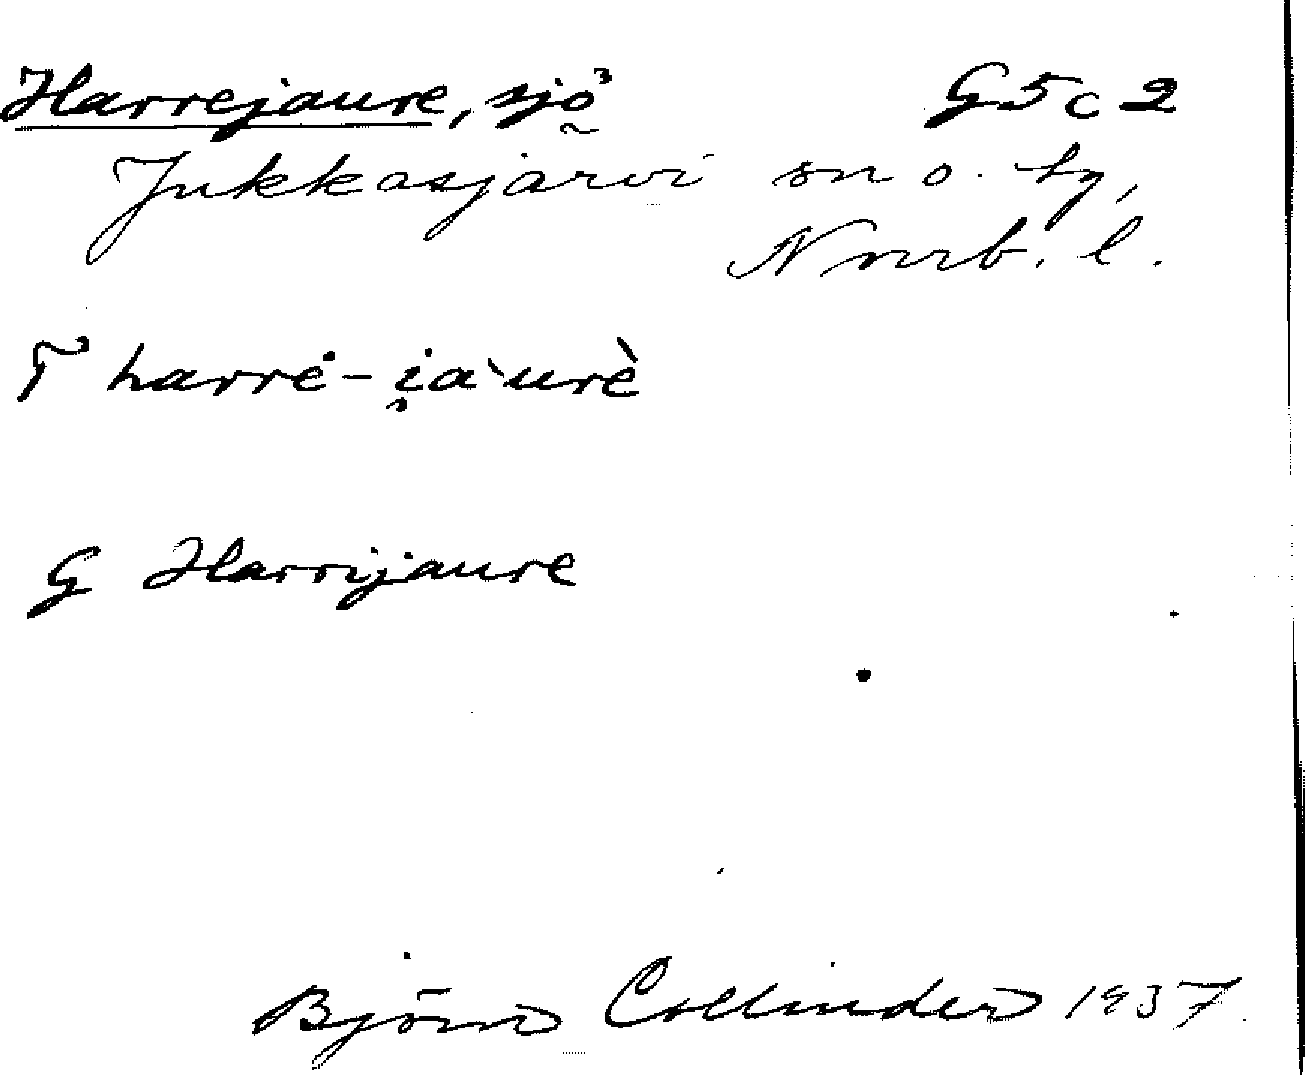 Harrejaure, sjö G5c2
Jukkasjärvi sn o. by,
Norrb. l.
T harrė-i̯a`urè
G Harrijaure
Björn Collinder 1937.